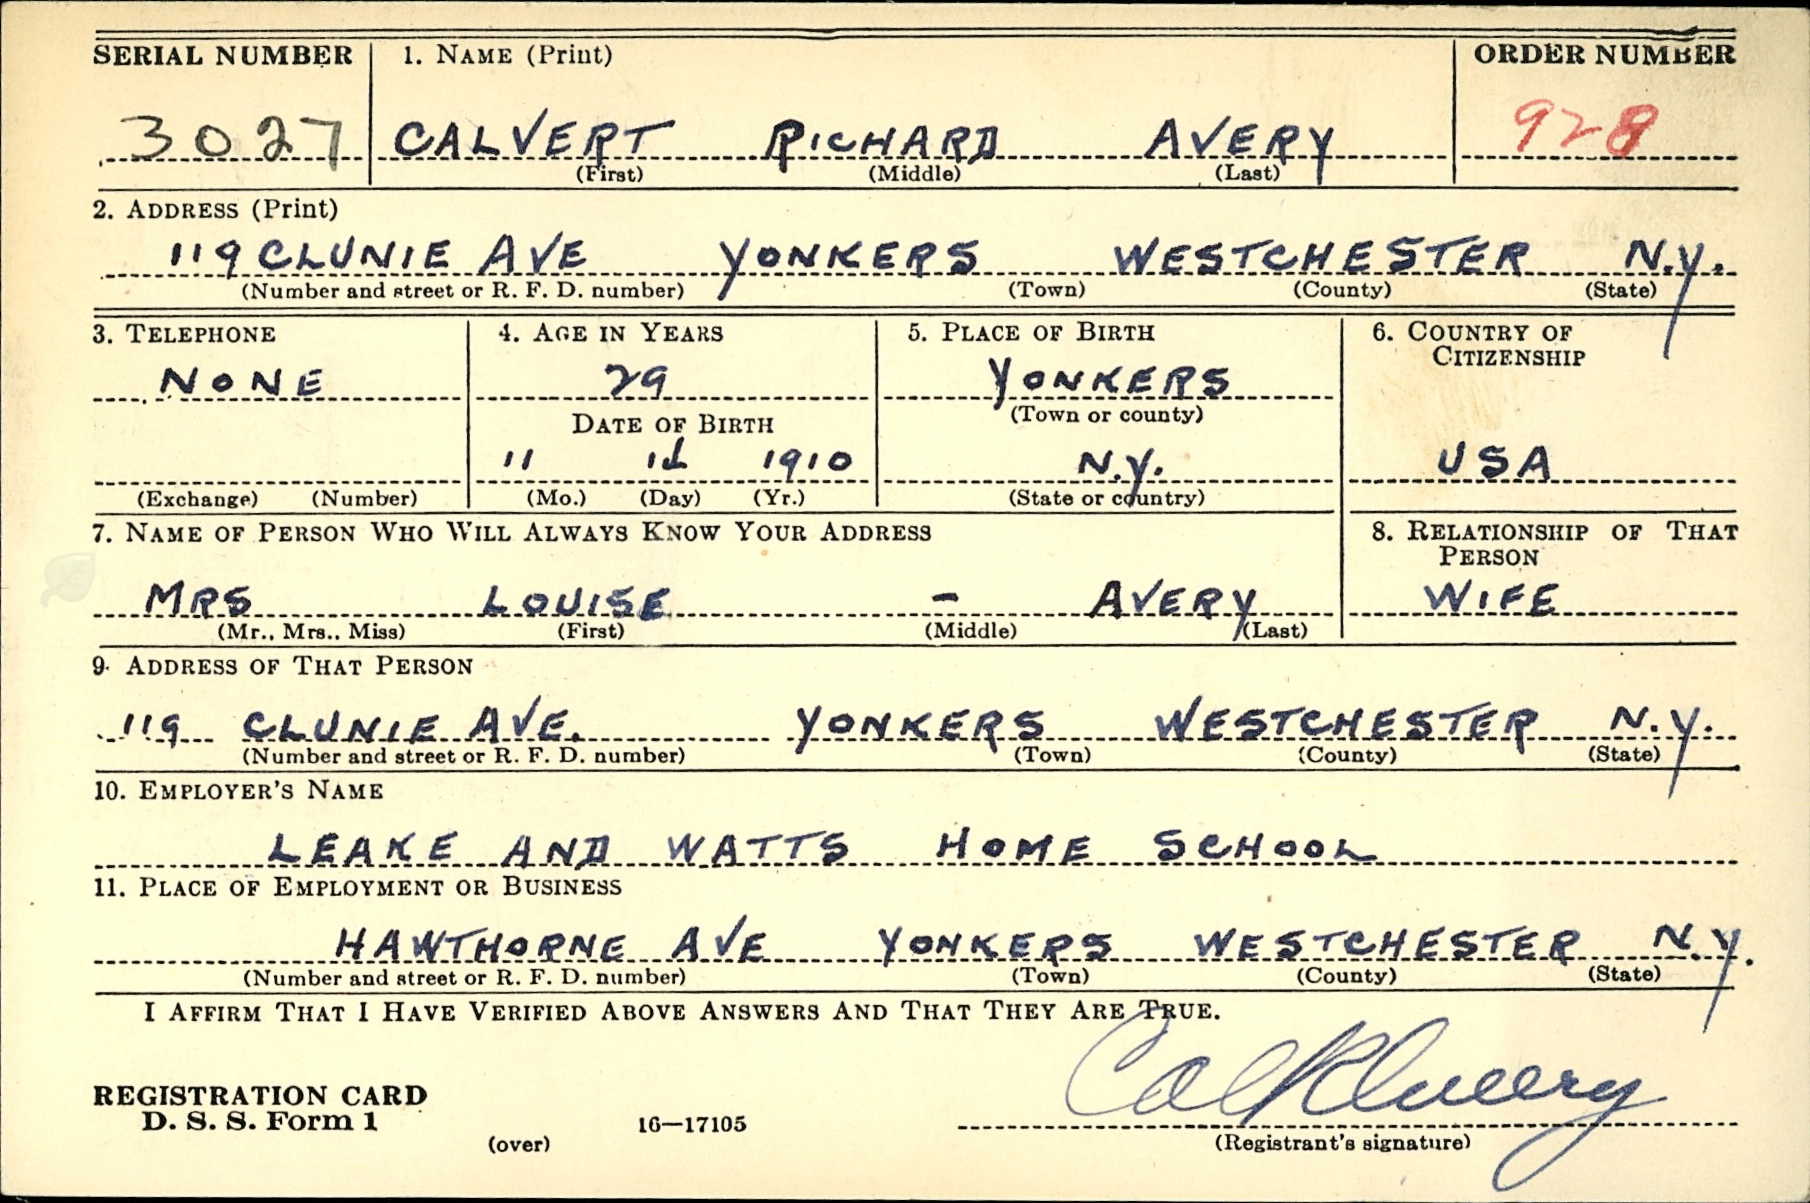 SERIAL NUMBER 1. NAME (Print) ORDER NUMBER
3027 CALVERT RICHARD AVERY 928
(First) (Middle) (Last)
2. ADDRESS (Print)
119 CLUNIE AVE YONKERS WESTCHESTER N.Y.
(Number and street or R. F. D. number) (Town) (County) (State)
3. TELEPHONE 4. AGE IN YEARS 5. PLACE OF BIRTH 6. COUNTRY OF
CITIZENSHIP
NONE 29 YONKERS
DATE OF BIRTH (Town or county)
11 1910 N.Y. USA
(Exchange) (Number) (Mo.) (Day) (Yr.) (State or country)
7. NAME OF PERSON WHO WILL ALWAYS KNOW YOUR ADDRESS 8. RELATIONSHIP OF THAT
PERSON
MRS LOUISE - AVERY WIFE
(Mr., Mrs., Miss) (First) (Middle) (Last)
9. ADDRESS OF THAT PERSON
119 CLUNIE AVE. YONKERS WESTCHESTER N.Y.
(Number and street or R. F. D. number) (Town) (County) (State)
10. EMPLOYER'S NAME
LEAKE AND WATTS HOME SCHOOL
11. PLACE OF EMPLOYMENT OR BUSINESS
HAWTHORNE AVE YONKERS WESTCHESTER N.Y.
(Number and street or R. F. D. number) (Town) (County) (State)
I AFFIRM THAT I HAVE VERIFIED ABOVE ANSWERS AND THAT THEY ARE TRUE.
Cal R Avery
REGISTRATION CARD
D. S. S. Form 1 16—17105
(over) (Registrant's signature)